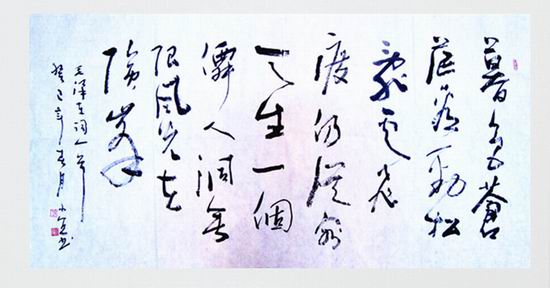 暮色蒼
茫看勁松
亂雲飛
渡仍從容
天生一個
僊人洞無
限風光在
險峯
毛澤東詞一首
癸巳年春月 書